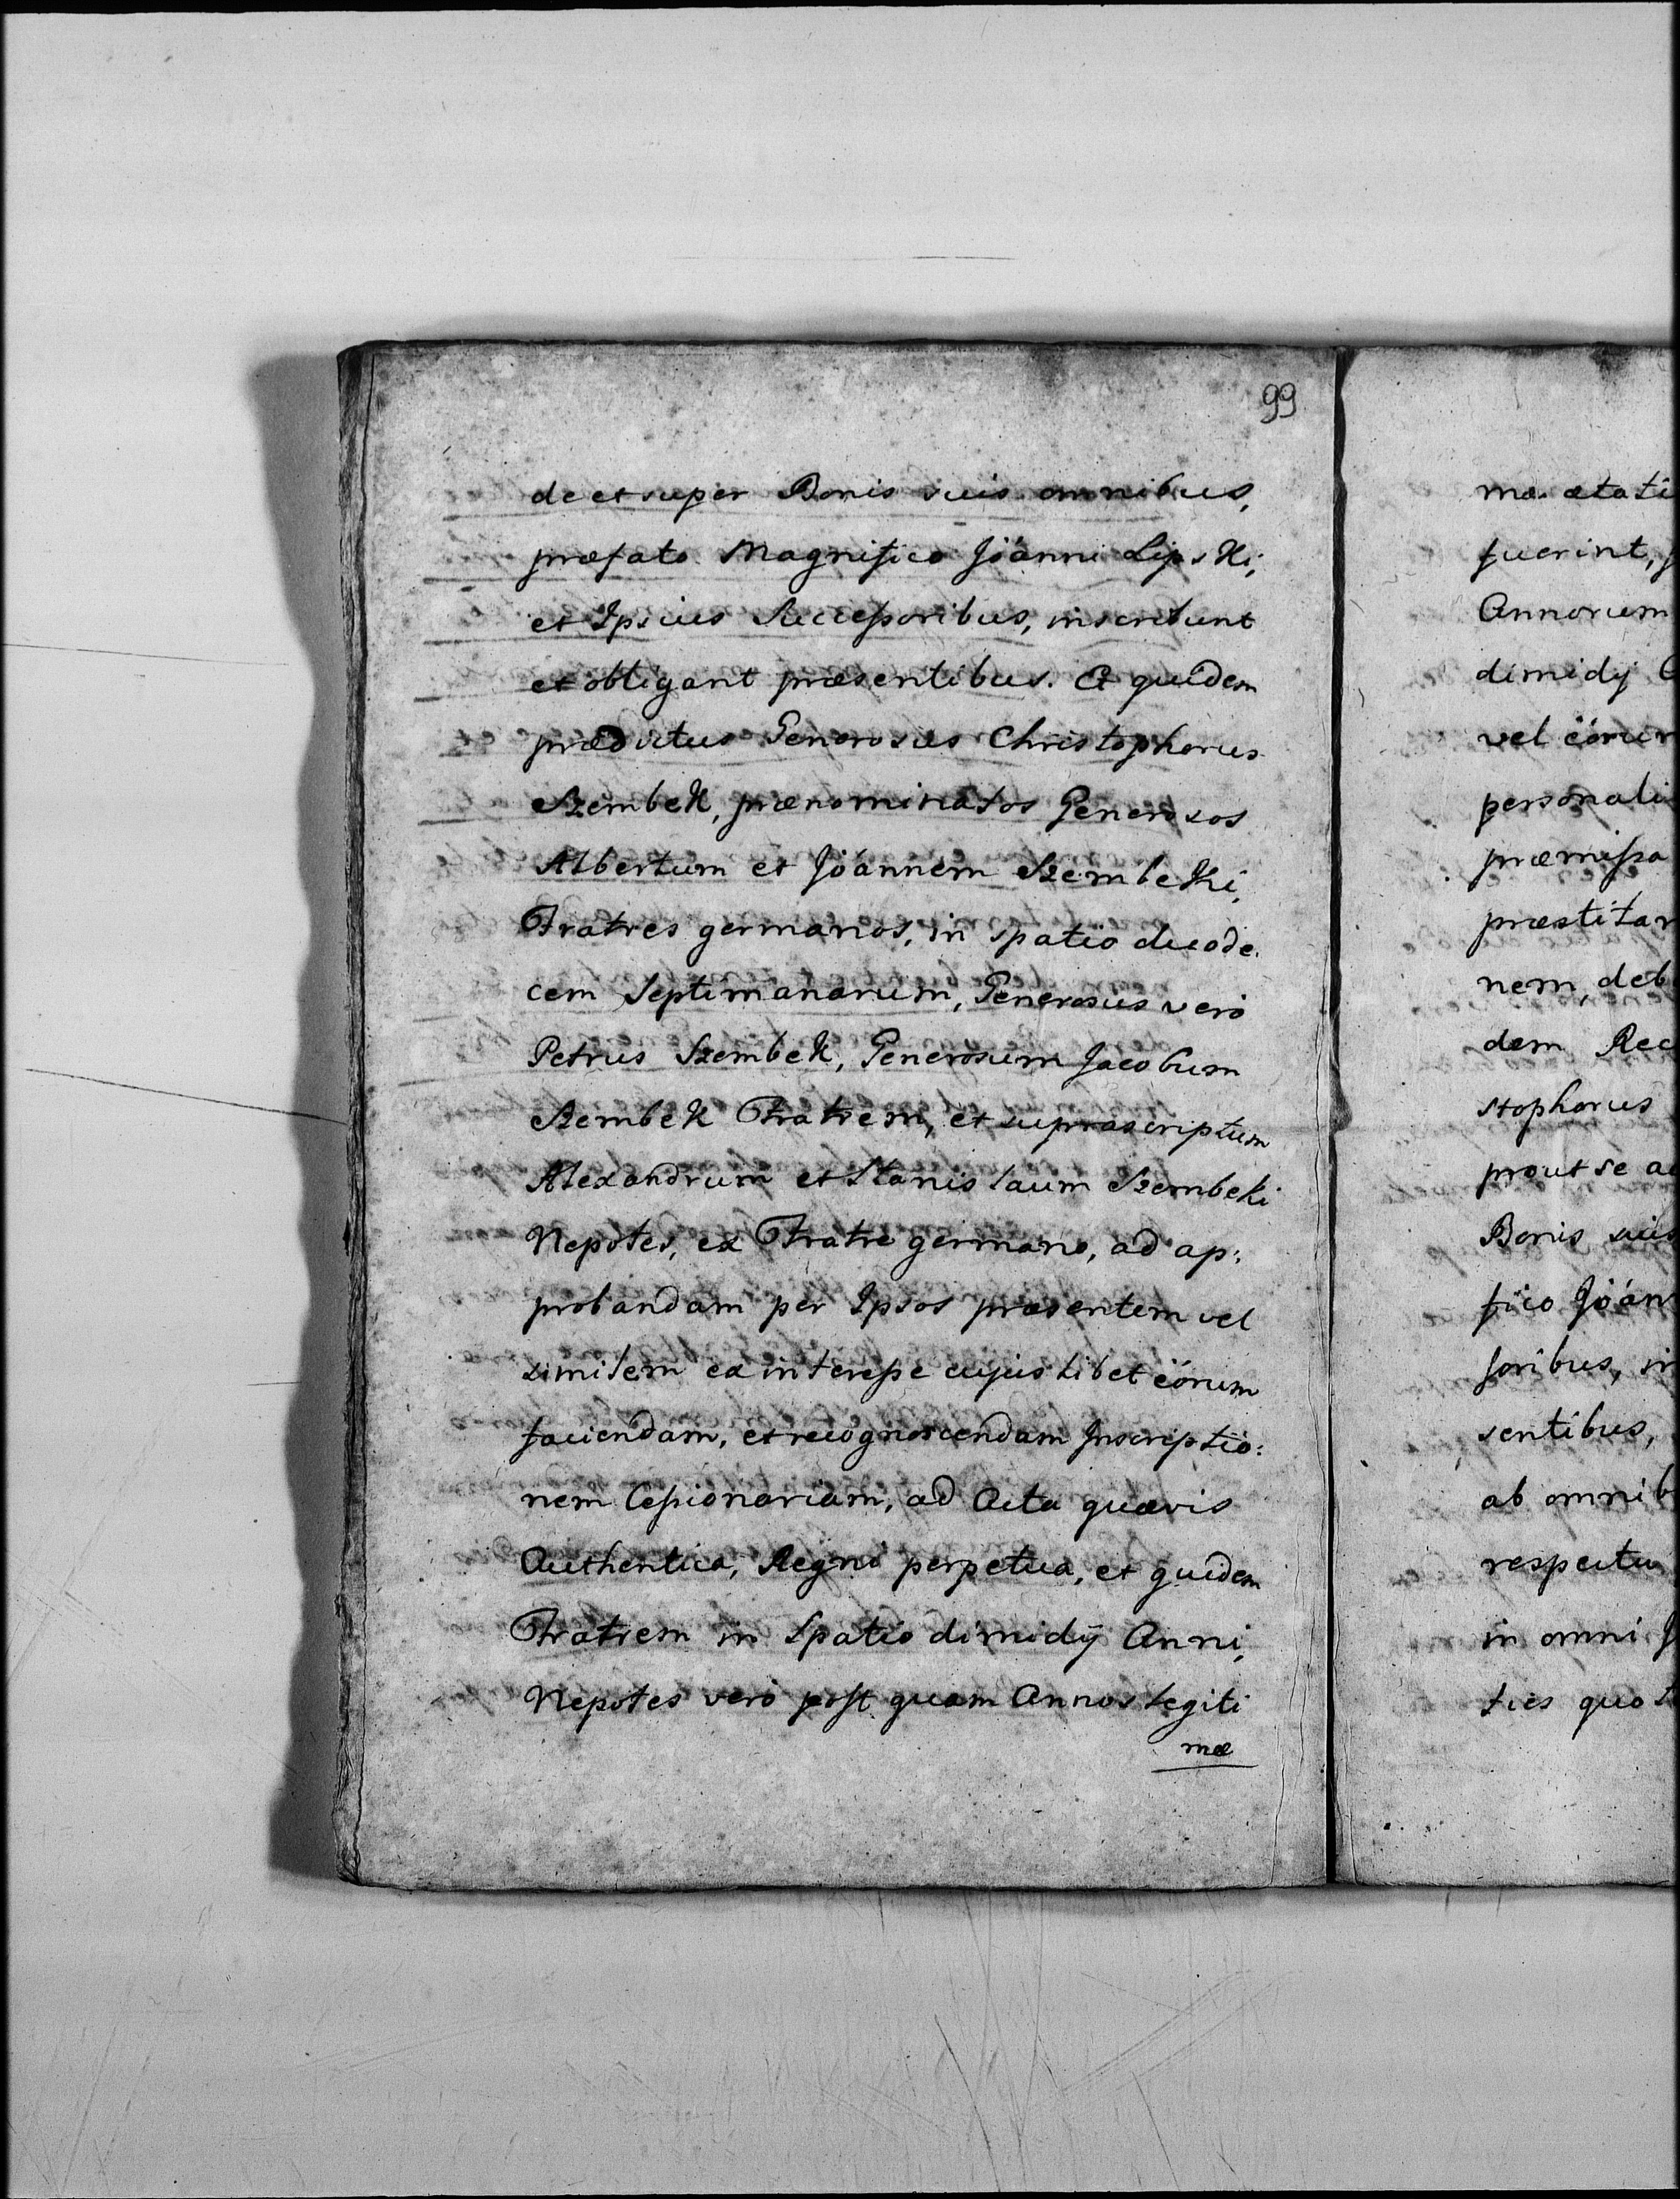 99
de et super Bonis suis omnibus,
præfato Magnifico Joánni Lipski,
et Ipsius Successoribus, inscribunt
et obligant præsentibus. Et quidem
prædictus Generosus Christophorus
Szembek, prænominatos Generosos
Albertum et Joánnem Szembeki,
Fratres germanos, in spatio duode:
cem Septimanarum, Generosus verò
Petrus Szembek, Generosum Jacobum
Szembek Fratrem, et suprascriptum
Alexandrum et Stanislaum Szembeki
Nepotes, ex Fratre germano, ad ap:
probandam per Ipsos præsentem vel
similem ex interesse cujuslibet eórum
faciendam, et recognoscendam Inscriptio:
nem Cessionariam, ad Acta quævis
Authentica, Regni perpetua, et quidem
Fratrem in Spatio dimidij Anni,
Nepotes verò post quam Annos legiti
mæ
mæ ætati
fuerint,
Annorum
dimidij
vel eórum
personali
præmissa
præstitar
nem, deb
dem Rec
stophorus
prout se ad
Bonis suis
fico Joán
soribus, in
sentibus,
ab omnib
respectu
in omni J
ties quot